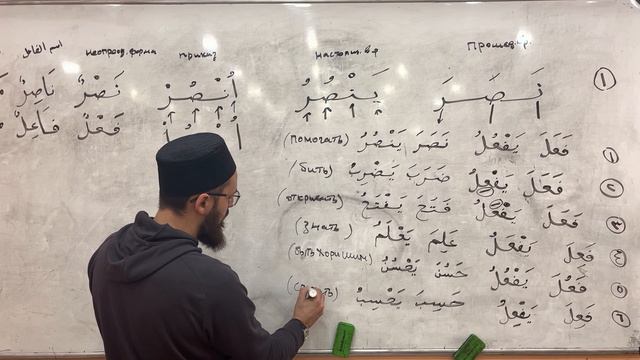 Прошед. вр. настоящ. вр приказ неопред. форма اسم الفاعل
① نَصَرَ يَنْصُرُ اُنْصُرْ نَصْرٌ نَاصِرٌ
فَعْلٌ فَاعِلٌ
① فَعَلَ يَفْعُلُ نَصَرَ يَنْصُرُ (помогать)
② فَعَلَ يَفْعِلُ ضَرَبَ يَضْرِبُ (бить)
③ فَعَلَ يَفْعَلُ فَتَحَ يَفْتَحُ (открывать)
④ فَعِلَ يَفْعَلُ عَلِمَ يَعْلَمُ (знать)
⑤ فَعُلَ يَفْعُلُ حَسُنَ يَحْسُنُ (быть хорошим)
⑥ فَعِلَ يَفْعِلُ حَسِبَ يَحْسِبُ